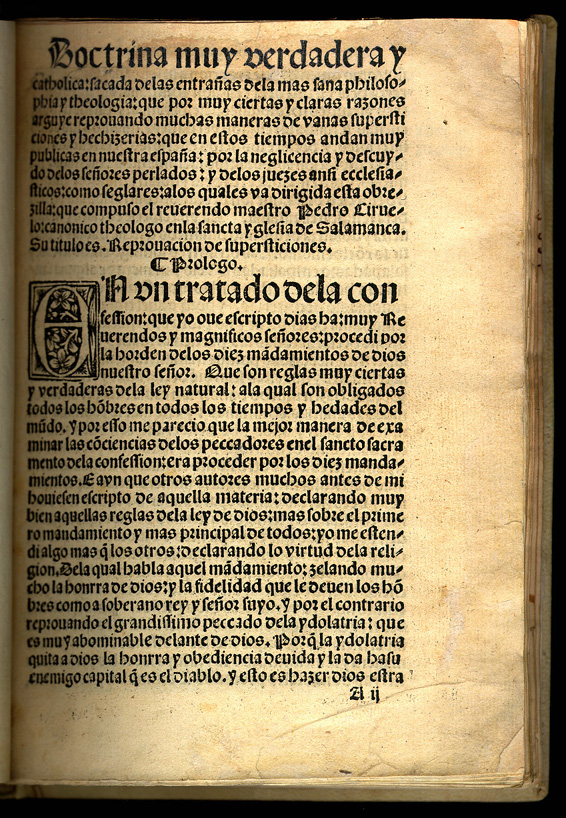 Doctrina muy verdadera y
catholica: sacada delas entrañas dela mas sana philoso-
phia y theologia: que por muy ciertas y claras razones
arguye reprouando muchas maneras de vanas supersti
ciones y hechizerias: que en estos tiempos andan muy
publicas en nuestra españa: por la neglicencia y descuy-
do delos señores perlados: y delos juezes ansi ecclesia-
sticos: como seglares: alos quales va dirigida esta obre-
zilla: que compuso el reuerendo maestro Pedro Cirue-
lo: canonico theologo enla sancta yglesia de Salamanca.
Su titulo es. Reprouacion de supersticiones.
¶ Prologo.
EN vn tratado dela con
fession: que yo oue escripto dias ha: muy Re
uerendos y magnificos señores: procedi por
la horden delos diez mãdamientos de dios
nuestro señor. Que son reglas muy ciertas
y verdaderas dela ley natural: ala qual son obligados
todos los hõbres en todos los tiempos y hedades del
mũdo. y por esso me parecio que la mejor manera de exa
minar las cõciencias delos peccadores enel sancto sacra
mento dela confession: era proceder por los diez manda-
mientos. E ayn que otros autores muchos antes de mi
houiesen escripto de aquella materia: declarando muy
bien aquellas reglas dela ley de dios: mas sobre el prime
ro mandamiento y mas principal de todos: yo me esten-
di algo mas q̃ los otros: declarando lo virtud dela reli-
gion. Dela qual habla aquel mãdamiento: zelando mu-
cho la honrra de dios: y la fidelidad que le deuen los hõ
bres como a soberano rey y señor suyo. y por el contrario
reprouando el grandissimo peccado dela ydolatria: que
es muy abominable delante de dios. Porq̃ la ydolatria
quita a dios la honrra y obediencia deuida y la da hasu
enemigo capital q̃ es el diablo. y esto es hazer dios estra
A ij